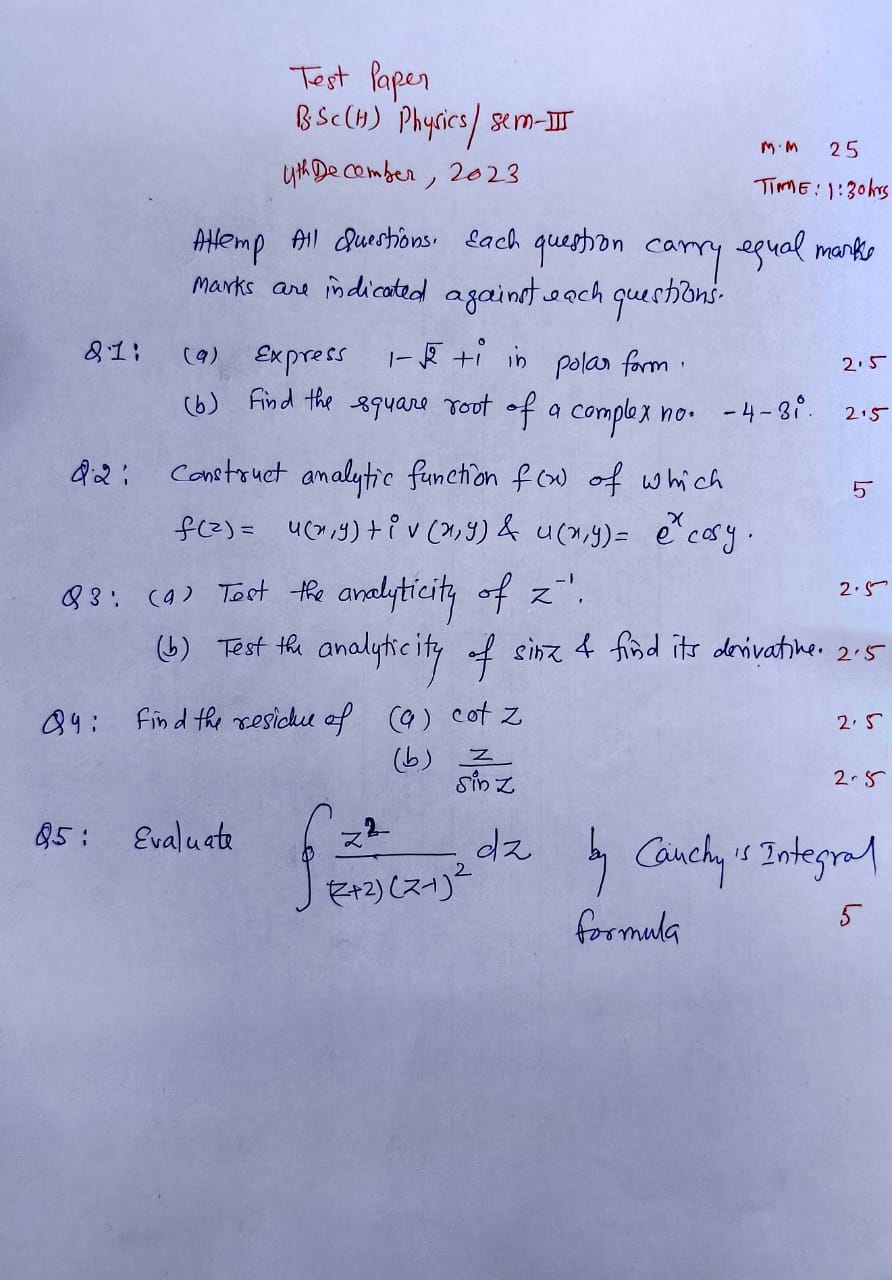 Test Paper
B.Sc(H) Physics/ sem-III
4th December, 2023
M.M 25
TIME: 1:30hrs
Attemp All Questions. Each question carry equal marks
Marks are indicated against each questions.
Q.1: (a) Express 1-√2 +i in polar form. 2.5
(b) Find the square root of a complex no. -4-3i. 2.5
Q.2: Construct analytic function f(x) of which 5
f(z)= u(x,y)+i v(x,y) & u(x,y)= e^x cosy.
Q3: (a) Test the analyticity of z^-1. 2.5
(b) Test the analyticity of sinz & find its derivative. 2.5
Q4: Find the residue of (a) cot z 2.5
(b) z/sin z 2.5
Q5: Evaluate ∮ z^2/(z+2)(z-1)^2 dz by Cauchy's Integral
formula 5